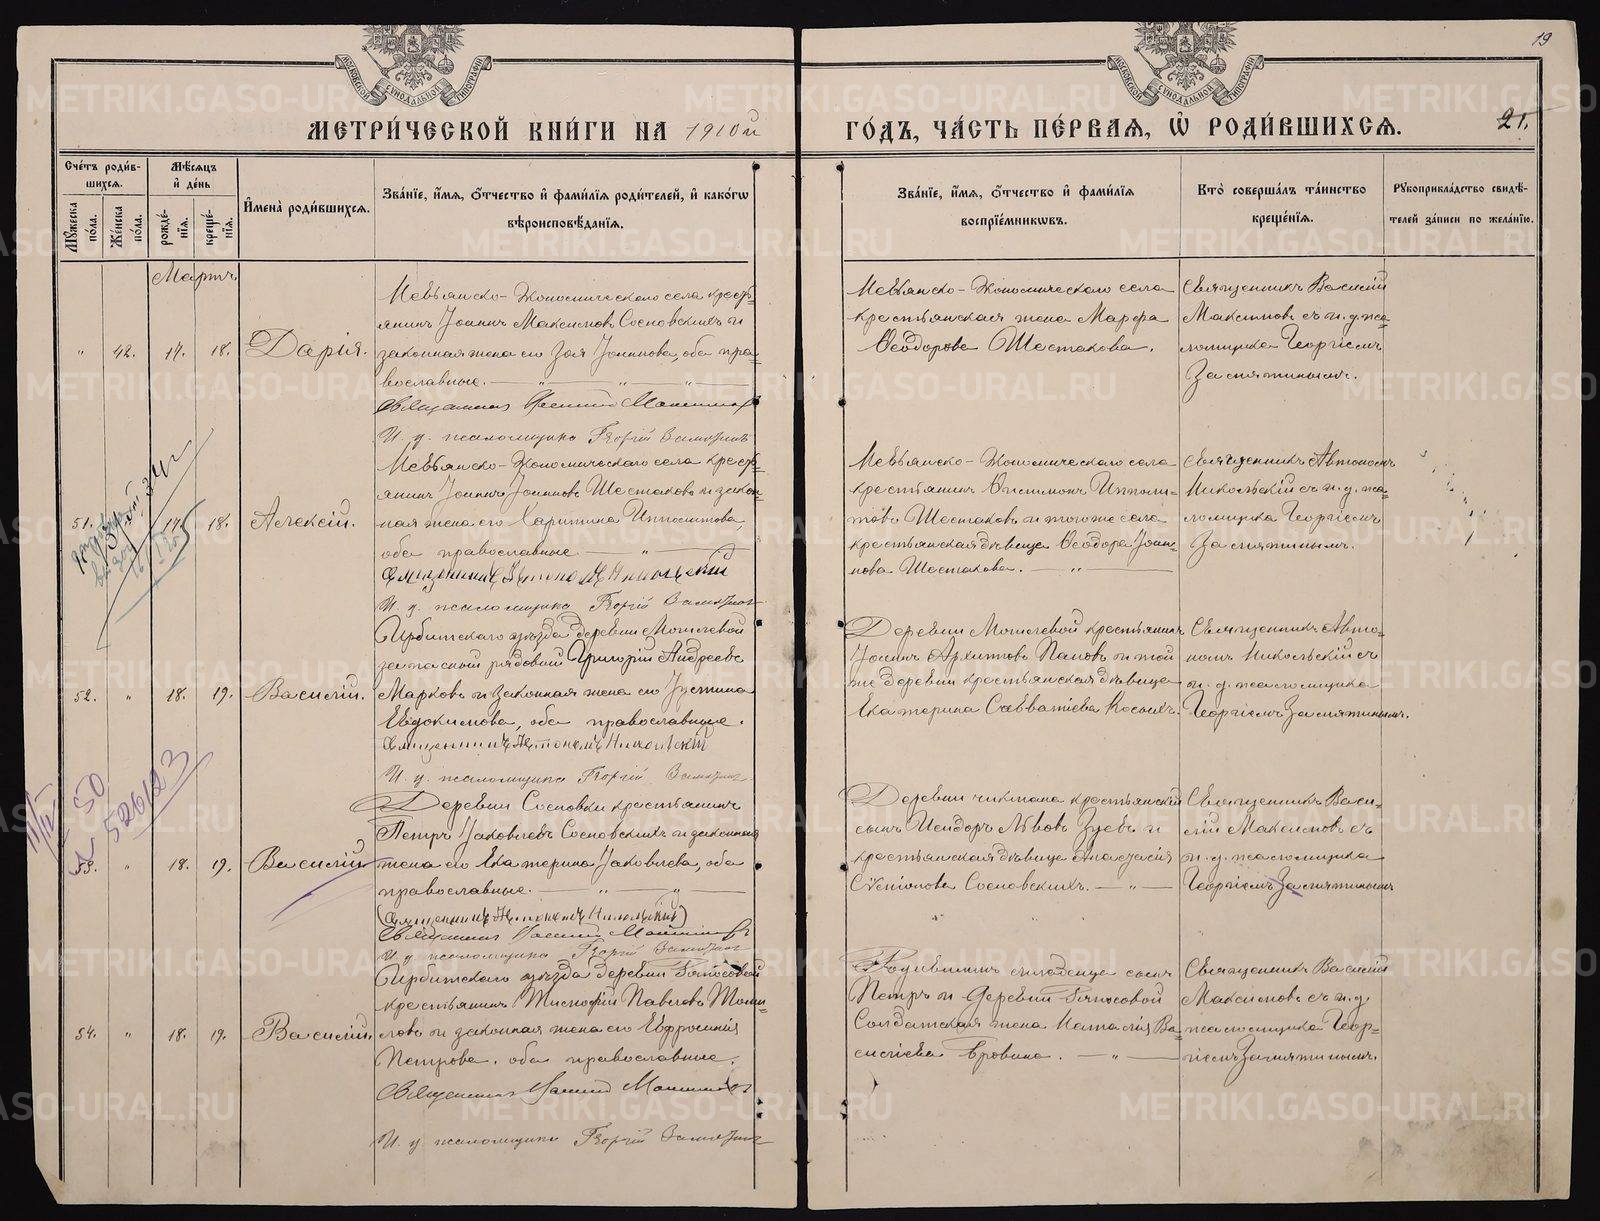 19
21.
МЕТРИ́ЧЕСКОЙ КНИ́ГИ НА 1910й ГО́ДЪ, ЧА́СТЬ ПЕ́РВАѦ, Ѽ РОДИ́ВШИХСѦ.
Сче́тъ роди́вшихсѧ.
Мꙋ́жеска по́ла.
Же́нска по́ла.
Мѣ́сѧцъ и҆ де́нь
рожде́нїѧ.
креще́нїѧ.
И҆мена̀ роди́вшихсѧ.
Зва́нїе, и҆́мѧ, ѻ҆́тчество и҆ фами́лїѧ роди́телей, и҆ како́гѡ
вѣроисповѣ́данїѧ.
Зва́нїе, и҆́мѧ, ѻ҆́тчество и҆ фами́лїѧ
воспрїе́мникѡвъ.
Кто̀ соверша́лъ та́инство
креще́нїѧ.
Рꙋкоприкла́дство свидѣ́-
телей за́писи по жела́нїю.
Мартъ
" 42. 17. 18. Дарія.
Невьянско-Экономическаго села кресть-
янинъ Іоаннъ Максимовъ Сосновскихъ и
законная жена его Зоя Іоаннова, оба пра-
вославные.
Священникъ Василий Максимовъ
И. д. псаломщика Георгій Замятинъ
Невьянско-Экономическаго села
крестьянская жена Марфа
Ѳеодорова Шестакова.
Священникъ Василій
Максимовъ съ и. д. пса-
ломщика Георгіемъ
Замятинымъ.
51. " 17. 18. Алексій.
Невьянско-Экономическаго села кресть-
янинъ Іоаннъ Іоанновъ Шестаковъ и закон-
ная жена его Харитина Ипполитова,
оба православные
Священникъ Автономъ Никольскій
И. д. псаломщика Георгій Замятинъ
Невьянско-Экономическаго села
крестьянинъ Филимонъ Ипполи-
товъ Шестаковъ и того же села
крестьянская дѣвица Ѳеодора Іоан-
нова Шестакова.
Священникъ Автономъ
Никольскій съ и. д. пса-
ломщика Георгіемъ
Замятинымъ.
52. " 18. 19. Василій.
Ирбитскаго уѣзда деревни Мочилевой
запасный рядовой Григорій Андреевъ
Марковъ и законная жена его Іустина
Евдокимова, оба православные.
Священникъ Автономъ Никольскій
И. д. псаломщика Георгій Замятинъ
Іоаннъ Архиповъ Пановъ и той
же деревни крестьянская дѣвица
Екатерина Савватіева Косыхъ.
Священникъ Авто-
номъ Никольскій съ
и. д. псаломщика
Георгіемъ Замятинымъ.
11/IV 50
526123
53. " 18. 19. Василій
Деревни Сосновки крестьянинъ
Петръ Іаковлевъ Сосновскихъ и законная
жена его Екатерина Іаковлева, оба
православные.
(Священникъ Автономъ Никольскій)
Священникъ Василий Максимовъ
И. д. псаломщика Георгій Замятинъ
сынъ Исидоръ Львовъ Зуевъ и
крестьянская дѣвица Анастасія
Сосновскихъ.
Священникъ Васи-
лій Максимовъ съ
и. д. псаломщика
Георгіемъ Замятинымъ
54. " 18. 19. Василій.
Ирбитскаго уѣзда деревни
крестьянинъ Тимофей Павловъ Томи-
ловъ и законная жена его Евфросинія
Петрова, оба православные.
Священникъ Василий Максимовъ
И. д. псаломщика Георгій Замятинъ
Родившійся младенца сынъ
Петръ и деревни
Солдатская жена Наталія Ва-
силіева Бровина.
Священникъ Василій
Максимовъ съ и. д.
псаломщика Геор-
гіемъ Замятинымъ.
METRIKI.GASO-URAL.RU